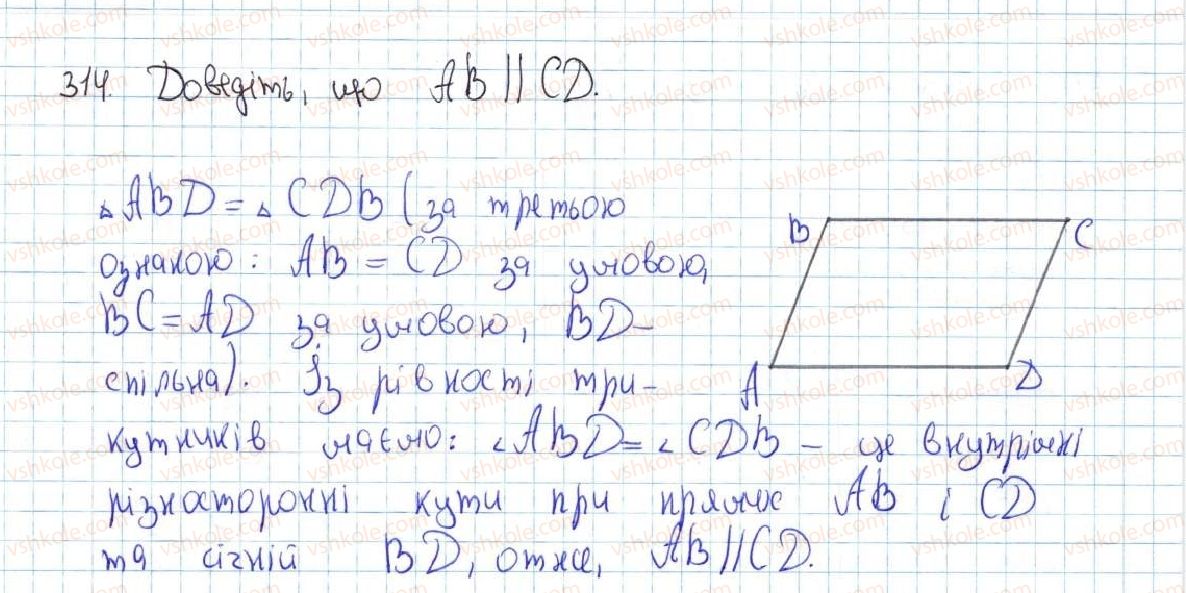 314. Доведіть, що AB || CD.
△ABD = △CDB (за третьою
ознакою: AB = CD за умовою,
BC = AD за умовою, BD –
спільна). Із рівності три-
кутників маємо: ∠ABD = ∠CDB – це внутрішні
різносторонні кути при прямих AB і CD
та січній BD, отже, AB || CD.
B
C
A
D
vshkole.com